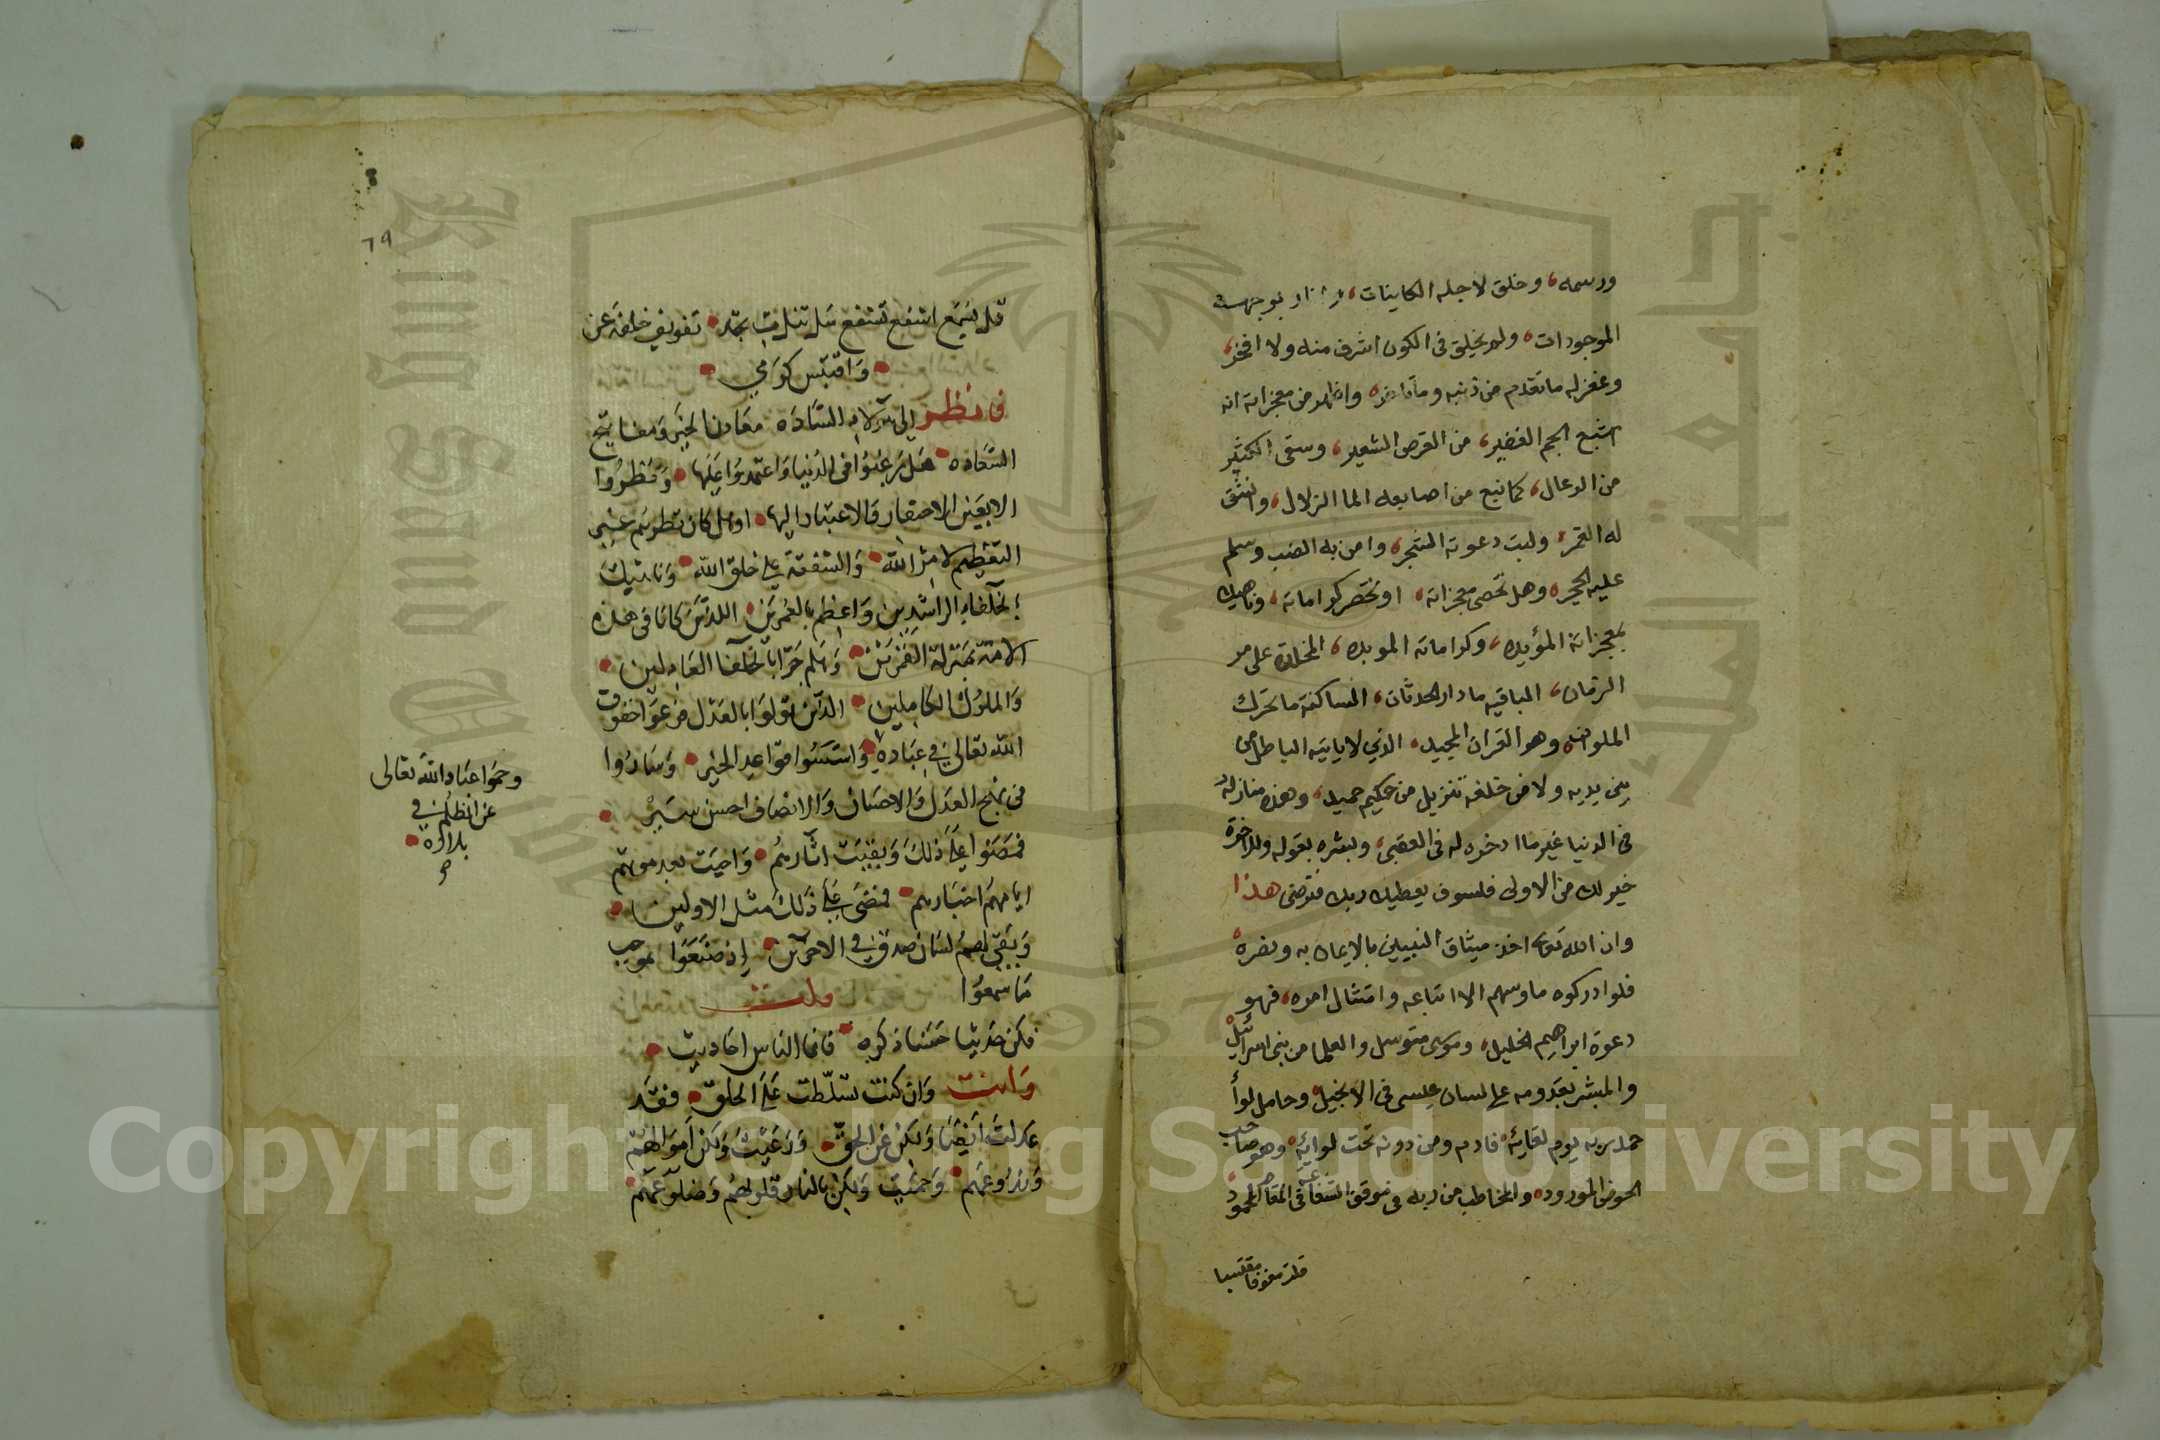 ورسمه، وخلق لاجله الكاينات، بوجهه
الموجودات، ولم يخلق فى الكون اشرف منه ولا افخر،
وغفر له ما تقدم من ذنبه وما تاخر، واظهر من معجزاته انه
اشبع الجم الغفير، من القرص الشعير، وسقى الكثير
من الرعال، كما نبع من اصابعه الما الزلال، وانشق
له القمر، ولبت دعوته الشجر، وامن به الضب وسلم
عليه الحجر، وهل تحصى معجزاته، او تحصر كراماته، وناهيك
بمعجزاته المؤيده، وكراماته الموبده، المخلدة على مر
الزمان، الباقيه ما دار الحدثان، الساكنة ما تحرك
الملوان، وهو القران المجيد، الذي لا ياتيه الباطل من
بين يديه ولا من خلفه تنزيل من حكيم حميد، وهذه منازله
فى الدنيا غير ما ادخره له فى العقبى، وبشره بقوله وللاخرة
خير لك من الاولى فلسوف يعطيك ربك فترضى هذا
وان الله تعالى اخذ ميثاق النبيين بالايمان به ونصره
فلو ادركوه ما وسهم الا اتباعه وامتثال امره، فهو
دعوة ابراهيم الخليل، وموسى متوسل والعلما من بنى اسرائيل
والمبشر بقدومه على لسان عيسى فى الانجيل، وحامل لوأ
حمد ربه يوم لقايه، فادم ومن دونه تحت لوايه، وهو صاحب
الحوض المورود، والمخاطب من ربه فى موقف الشفاعة فى المقام المحمود
قل تسمع اشفع تشفع سل تنل يجب تفويف خلفه عن
واقتبس كرامي
فانظر الى هولاء السادة معادن الخير ومفاتيح
السعاده هل رغبوا فى الدنيا واعتمدوا عليها ونظروا
الا بعين الاحتقار والاعتبار اليها او هل كان نظرهم غير
التعظيم لامر الله والشفقة على خلق الله وناهيك
بالخلفاء الراشدين واعظم بالعمرين اللذين كانا فى هذه
الامة بمنزلة القمرين وهلم جرا بالخلفا العادلين
والملوك الكاملين الذين تولوا بالعدل فرعوا حقوق
الله تعالى فى عباده واسسوا قواعد الخير وساروا
فى نهج العدل والاحسان والانصاف احسن سير
فمضوا على ذلك وبقيت اثارهم واحيت بعد موتهم
ايامهم اخبارهم فمضى على ذلك مثل الاولين
وبقى لهم لسان صدق فى الاخرين اذ صنعوا بموجب
ما سمعوا
فكن حديثا حسنا ذكره فانما الناس احاديث
وانت وان كنت تسلطت على الخلق فقد
عدلت ايضا ولكن عن الحق ورعيت ولكن اموالهم
وزروعهم وحميت ولكن بالنار قلوبهم وضلوعهم
وحموا عباد الله تعالى
عن الظلم فى
بلاده
Copyright © King Saud University